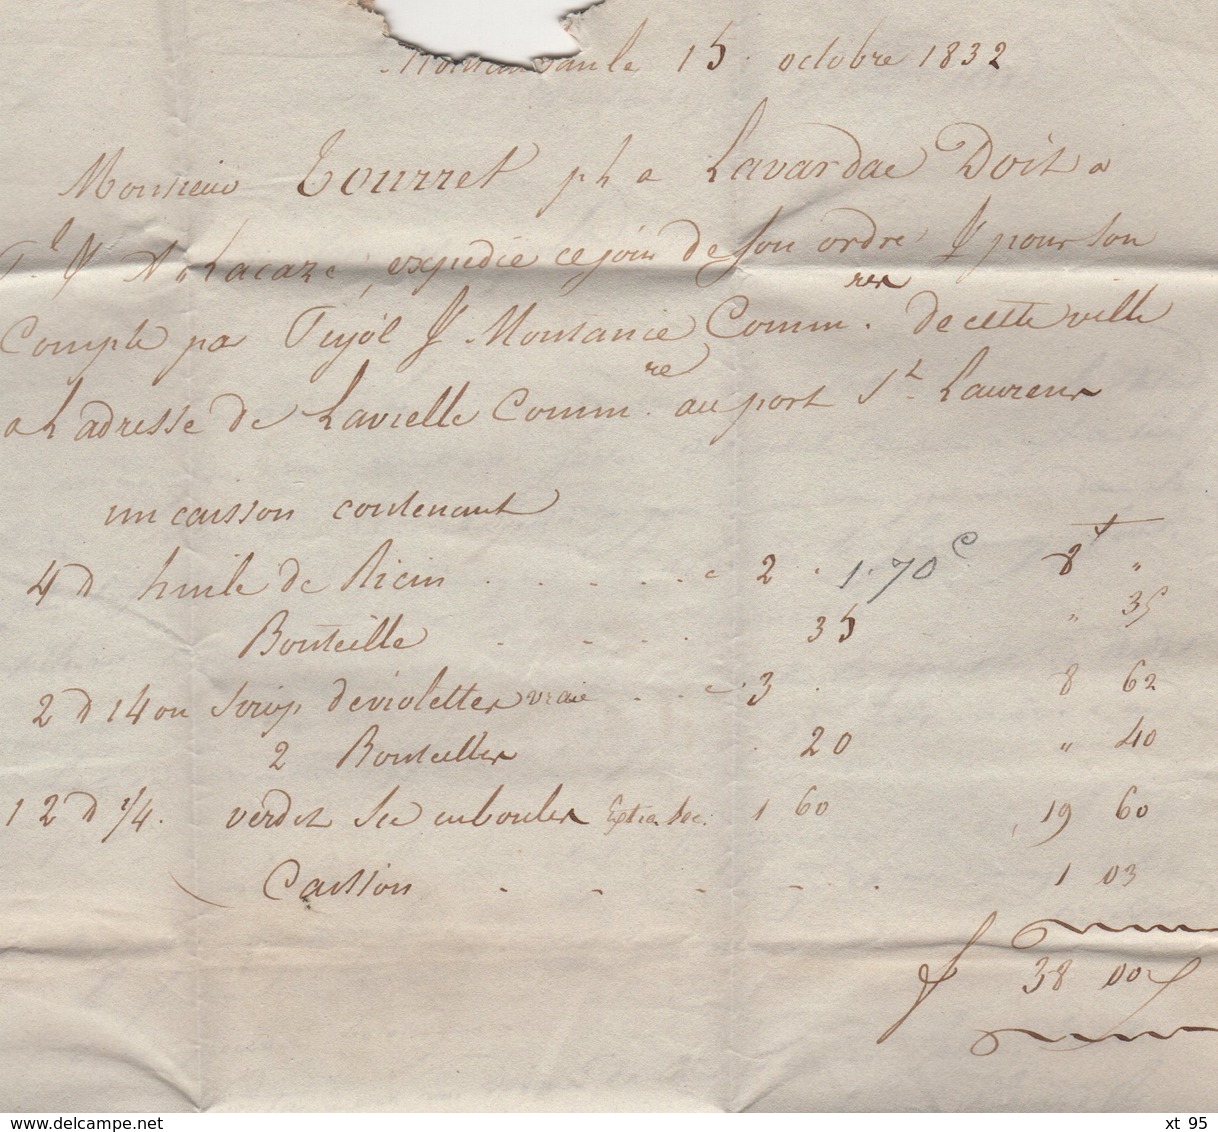 15 octobre 1832
Monsieur Tourret ph a Lavardac Doit a
Lacaze, expedie ce join de son ordre & pour son
Compte pa Pujol & Montanié Comm.res de cette ville
a L adresse de Lavielle Comm.re au port St Laurent
un caisson contenant
4 d huile de Ricin . . . . c 2 . 1.70c 8f "
Bouteille . . . . 35 " 35
2 d 14 on Sirop de violettes vraie . . c 3 . 8 62
2 Bouteilles . 20 " 40
12 d 1/4 . verdet Sec en boules Extra sec. 1 60 19 60
Caisson . . . . . 1 03
f 38 00
www.delcampe.net
xt 95